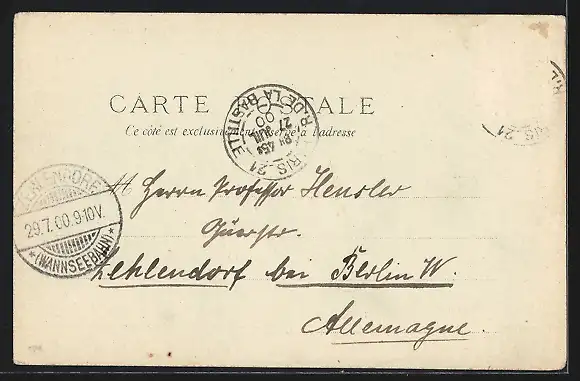 CARTE POSTALE
Ce côté est exclusivement réservé à l'adresse
PARIS_21 R. DE LA BASTILLE
27 JUIL 00
ZEHLENDORF
29.7.00.9-10V.
*(WANNSEEBAHN)*
Herrn Professor Hensler
Zehlendorf bei Berlin W.
Allemagne.